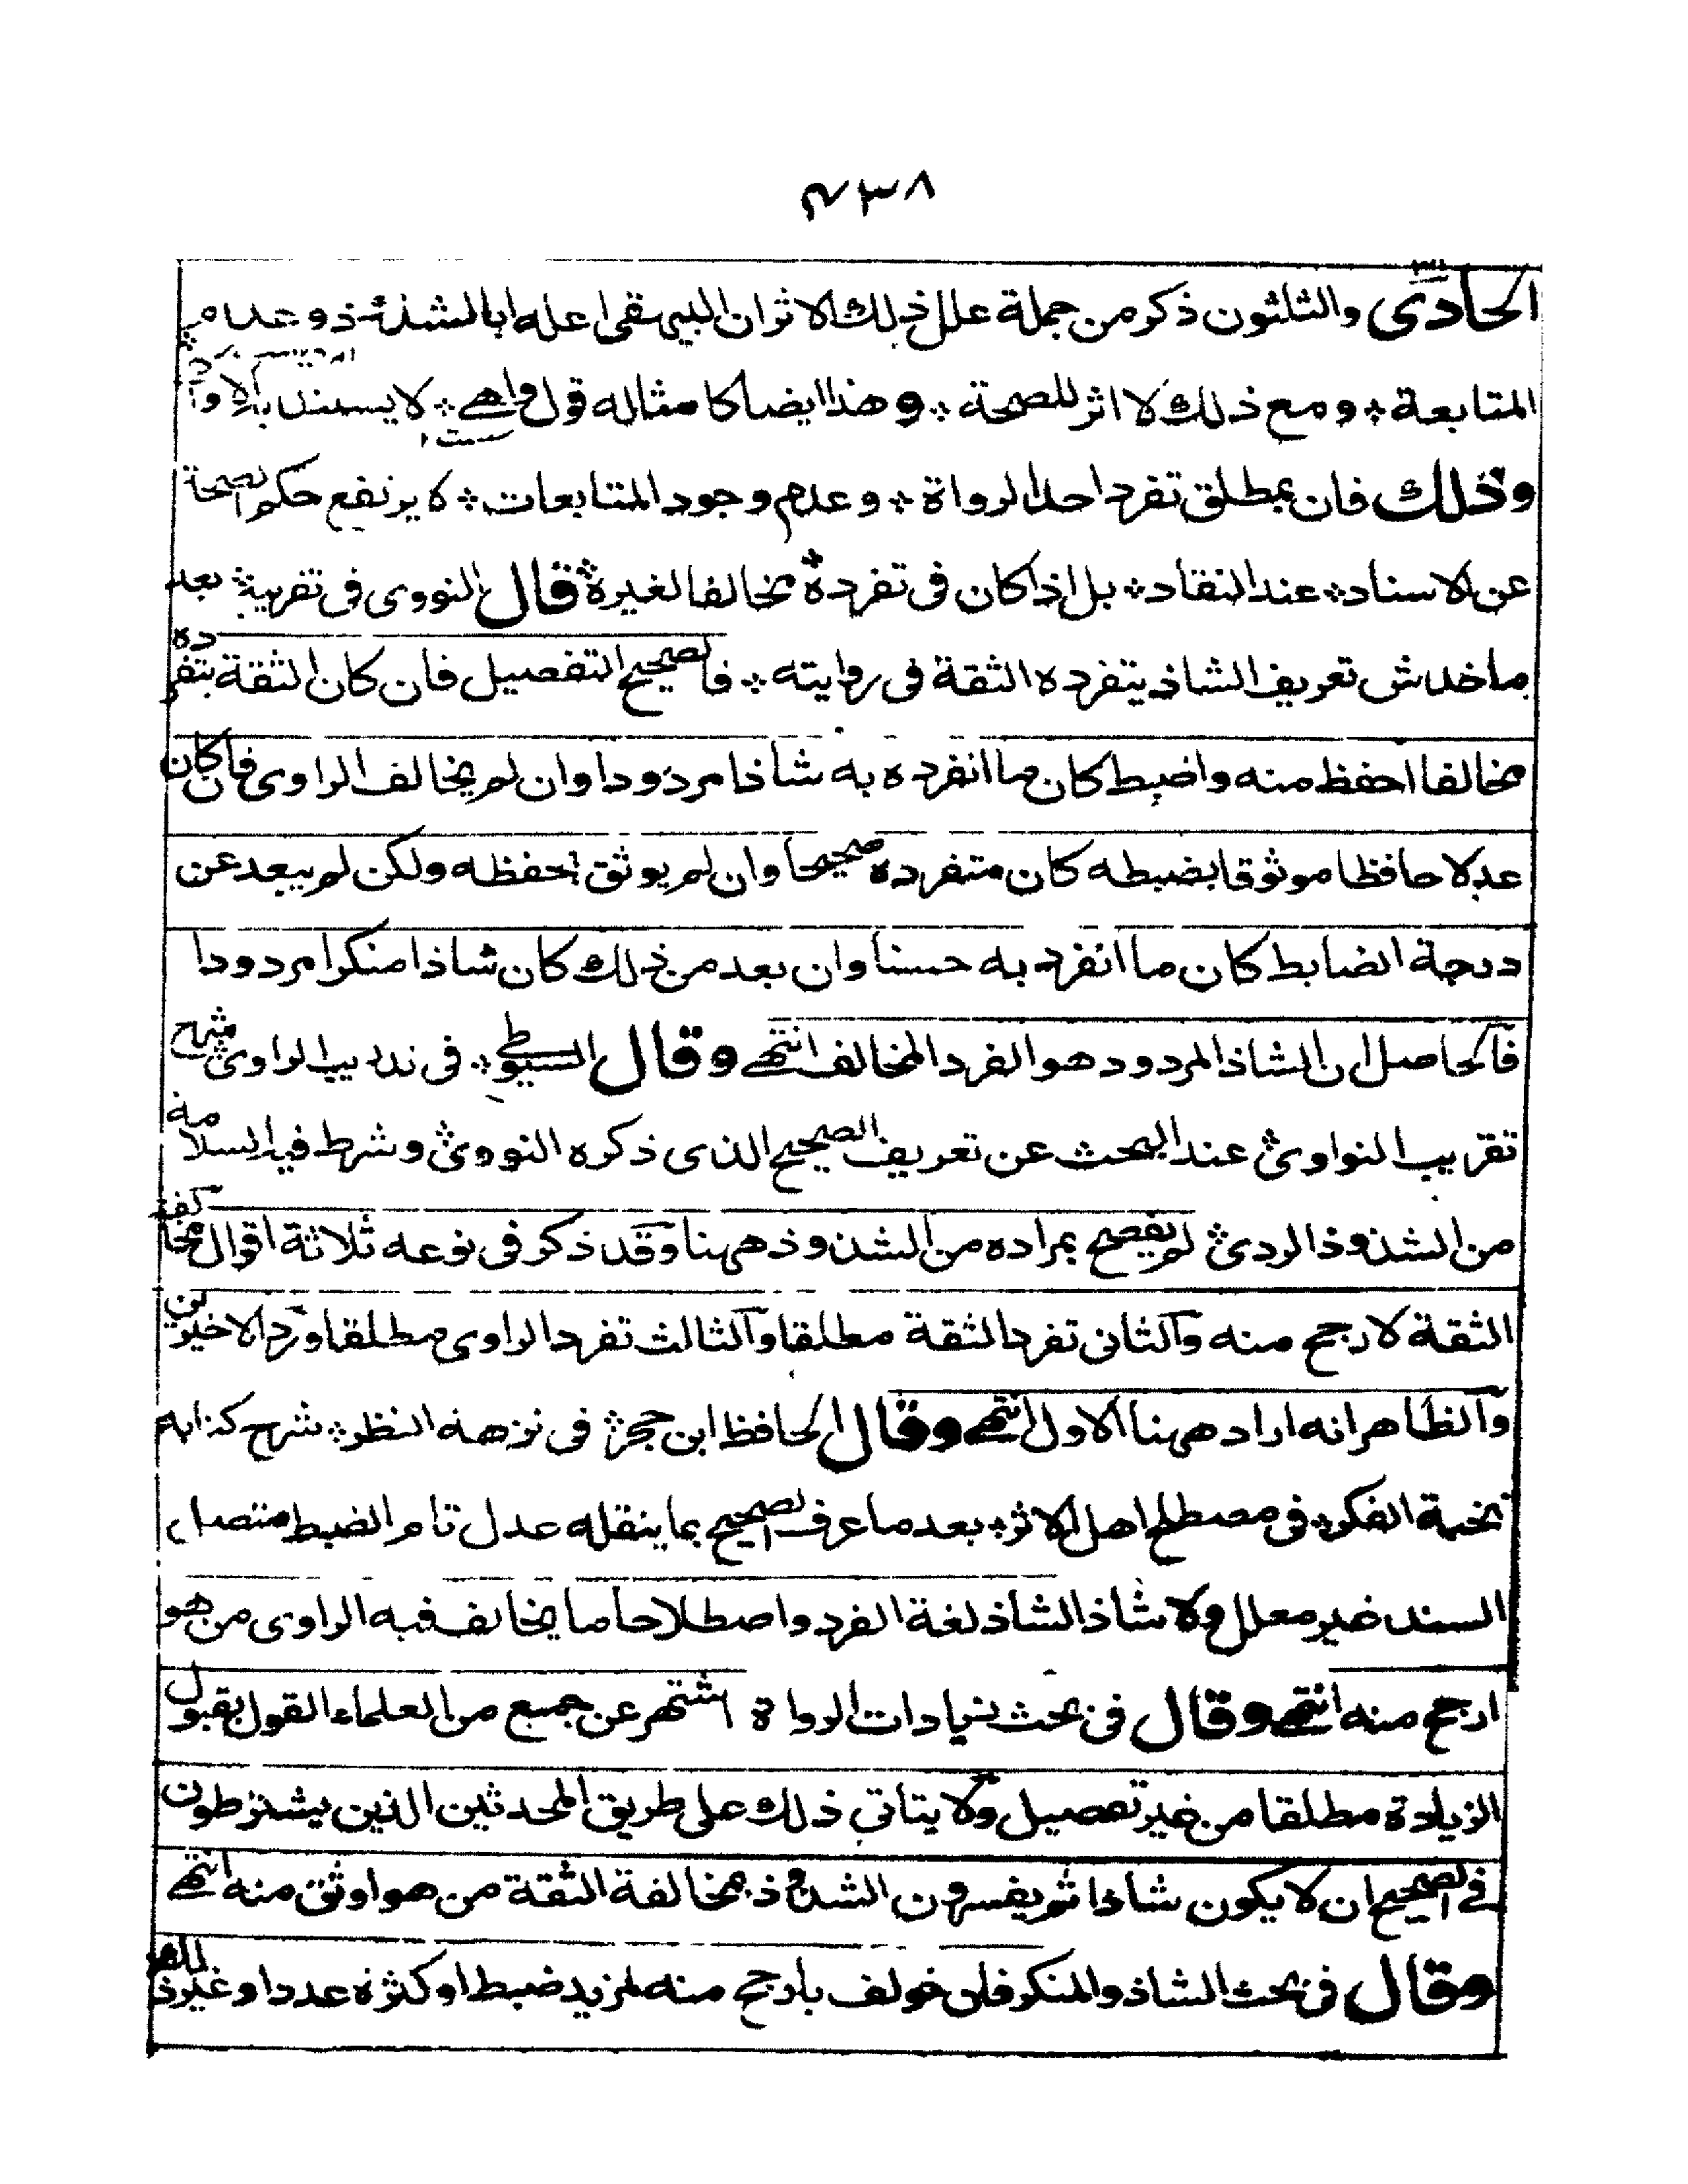 ۴۳۸
الحادی والثلثون ذکر من جملة علل ذلك الاثر ان البیہقی اعله ابالشذوذ وعدم
المتابعة ؞ ومع ذلك لا اثر للصحة ؞ وهذا ایضا کا مثاله قول واهی ؞ لا یستند
وذلك فان بمطلق تفرد احد الرواة ؞ وعدم وجود المتابعات ؞ لا یرتفع حکم الصحة
عن الاسناد ؞ عند النقاد ؞ بل اذا کان فی تفرده مخالفا لغیرہ ؞ قال النووی فی تقریبه ؞ بعد
ما خدش تعریف الشاذ بتفرده الثقة فی روایته ؞ فالصحیح التفصیل فان کان الثقة بتفرده
مخالفا احفظ منه واضبط کان ما انفرده به شاذا مردودا وان لم یخالف الراوی فان کان
عدلا حافظا موثوقا بضبطه کان متفرده صحیحا وان لم یوثق بحفظه ولکن لم یبعد عن
درجة الضابط کان ما انفرد به حسنا وان بعد من ذلك کان شاذا منکرا مردودا
فالحاصل ان الشاذ المردود هو الفرد المخالف انتهی وقال السیوطی ؞ فی تدریب الراوی ؞ شرح
تقریب النواوی ؞ عند البحث عن تعریف الصحیح الذی ذکره النووی ؞ وشرط فیه السلامة
من الشذوذ الردی ؞ لم یفصح بمراده من الشذوذ ههنا وقد ذکر فی نوعه ثلاثة اقوال مخالفة
الثقة لارجح منه والثانی تفرد الثقة مطلقا والثالث تفرد الراوی مطلقا ورد الاخیرین
والظاهر انه اراد ههنا الاول انتهی وقال الحافظ ابن حجر ؞ فی نزهة النظر ؞ شرح کتابه
نخبة الفکر ؞ فی مصطلح اهل الاثر ؞ بعد ما عرف الصحیح بما ینقله عدل تام الضبط متصل
السند غیر معلل ولا شاذ الشاذ لغة الفرد واصطلاحا ما یخالف فیه الراوی من هو
ارجح منه انتهی وقال فی بحث زیادات الرواة اشتهر عن جمع من العلماء القول بقبول
الزیادة مطلقا من غیر تفصیل ولا یتاتی ذلك علی طریق المحدثین الذین یشترطون
فی الصحیح ان لا یکون شاذا ثم یفسرون الشذوذ بمخالفة الثقة من هو اوثق منه انتهی
وقال فی بحث الشاذ والمنکر فان خولف بارجح منه لمزید ضبط او کثرة عددا وغیر ذ